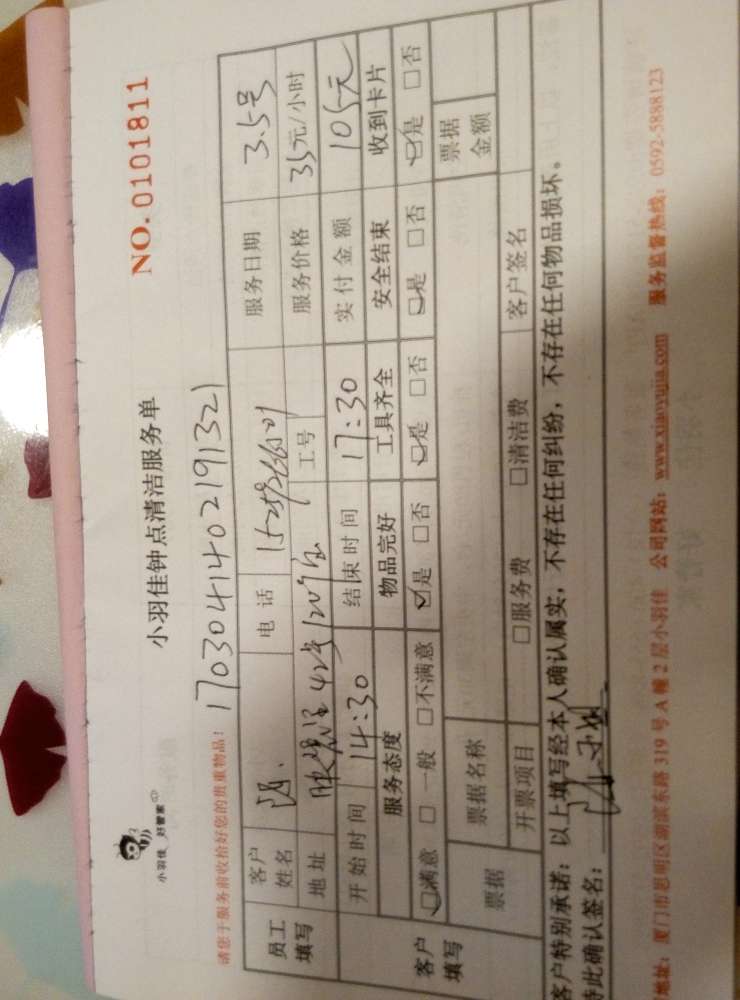 小羽佳 好管家
小羽佳钟点清洁服务单
NO.0101811
请您于服务前收拾好您的贵重物品！
1703041402191321
员工填写 客户姓名 电话 服务日期 3.5号
地址 42号1209室 工号 服务价格 35元/小时
开始时间 14:30 结束时间 17:30 实付金额 105元
客户填写 服务态度 物品完好 工具齐全 安全结束 收到卡片
☑满意 □一般 □不满意 ☑是 □否 ☑是 □否 ☑是 □否 ☑是 □否
票据 票据名称 票据金额
开票项目 □服务费 □清洁费 客户签名
客户特别承诺：以上填写经本人确认属实，不存在任何纠纷，不存在任何物品损坏。
特此确认签名：
地址：厦门市思明区湖滨东路319号A幢2层小羽佳 公司网站：www.xiaoyujia.com 服务监督热线：0592-5888123